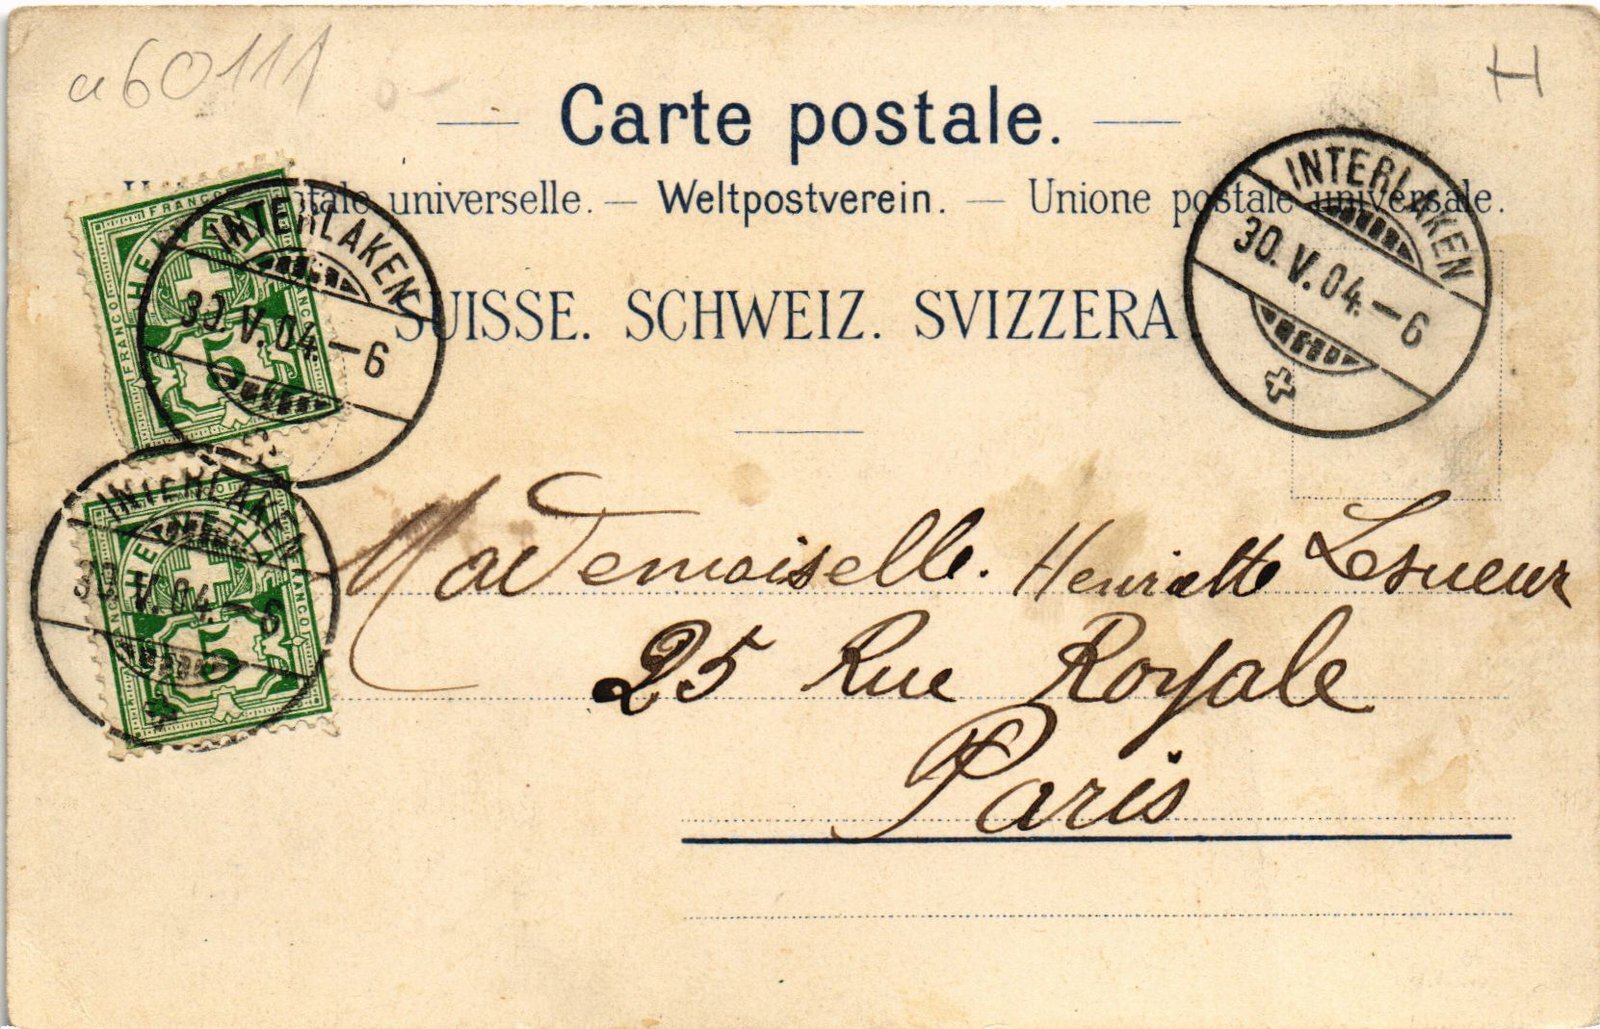 a60111
H
Carte postale.
postale universelle. — Weltpostverein. — Unione postale universale.
SUISSE. SCHWEIZ. SVIZZERA.
INTERLAKEN
30.V.04.—6
FRANCO
HELVETIA
FRANCO
FRANCO
5
INTERLAKEN
30.V.04.—6
INTERLAKEN
30.V.04.—6
HELVETIA
FRANCO
5
Mademoiselle. Henriette Lesueur
25 Rue Royale
Paris